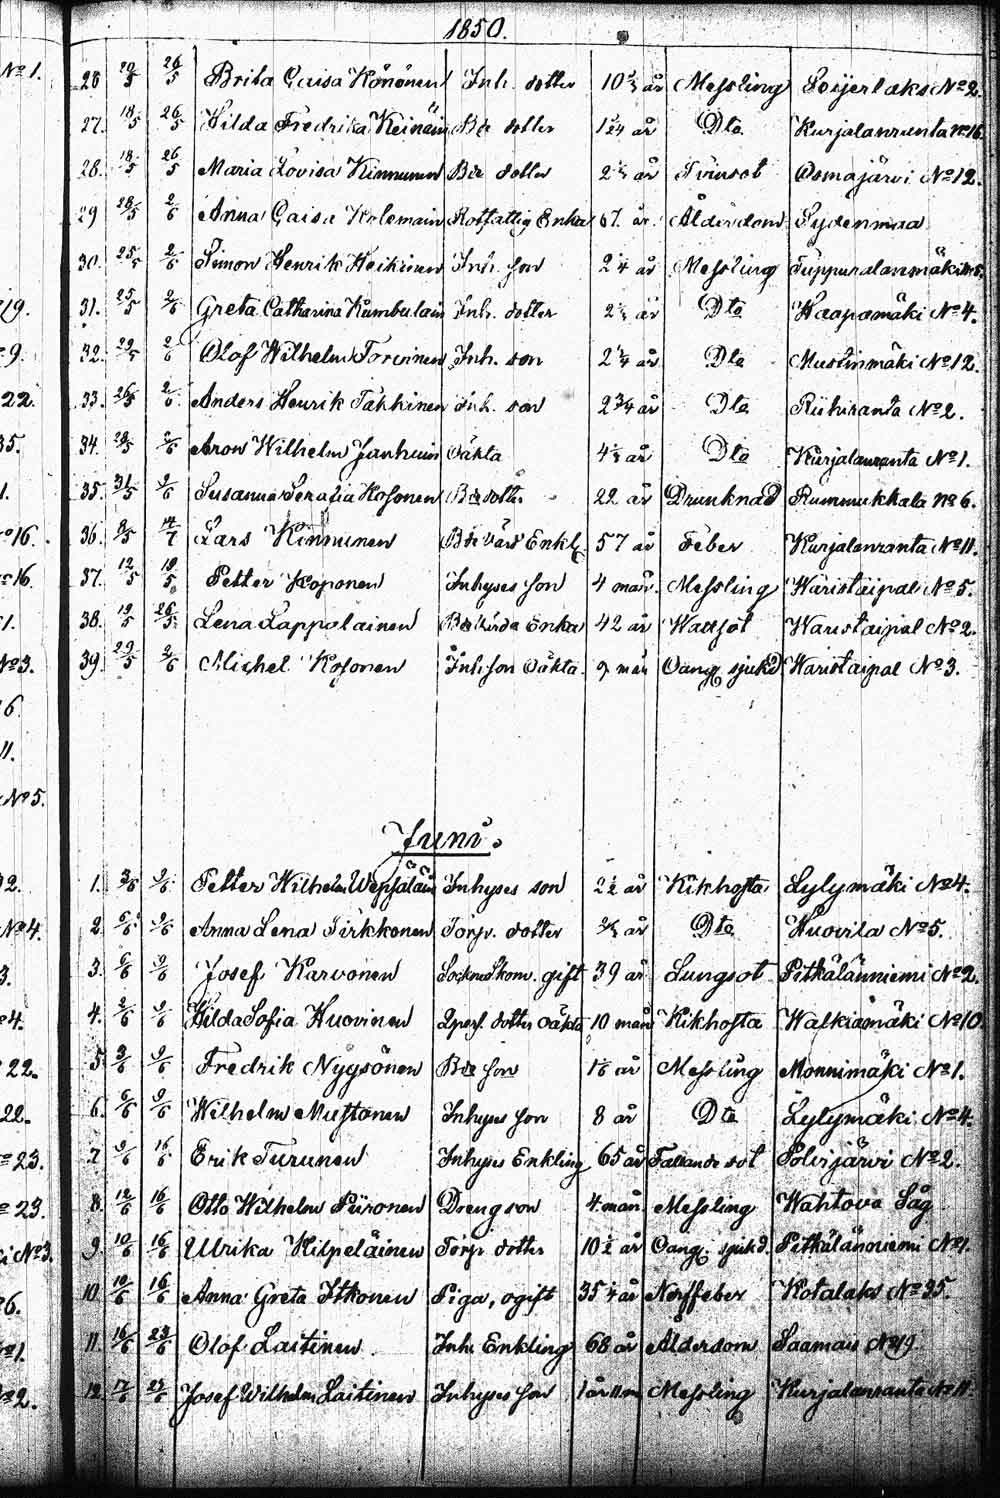 1850.
28 20/5 26/5 Brita Caisa Könönen Inh. dotter 10 ½ år Messling Loijerlaks No 2.
27. 18/5 26/5 Hilda Fredrika Keinäin Bde dotter 1 år Dto Kurjalanranta No 16.
28. 18/5 26/5 Maria Lovisa Kinnunen Bde dotter 2 ½ år Tvinsot Osmajärvi No 12.
29 28/5 2/6 Anna Caisa Kolemain Rotfattig Enka 67. år. Ålderdom Sydenmaa
30. 25/5 2/6 Simon Henrik Heikinen Inh. son 2 ¼ år Messling Tuppuralanmäki No 5.
31. 25/5 2/6 Greta Catharina Kumbulain Inh. dotter 2 ½ år Dto Haapamäki No 4.
32. 29/5 2/6 Olof Wilhelm Torvinen Inh. son 2 ¼ år Dto Mustinmäki No 12.
33. 26/5 2/6 Anders Henrik Takkinen Inh. son 2 ¾ år Dto Riihiranta No 2.
34. 28/5 2/6 Aron Wilhelm Janhuin Oäkta 4 ½ år Dto Kurjalanranta No 1.
35. 31/5 9/6 Susanna Serafia Kosonen Bde dotter 22 år Drunknad Rummukkala No 6.
36. 8/5 14/7 Lars Kinnunen Bde Enkl. 57 år Feber Kurjalanranta No 11.
37. 12/5 19/5 Petter Koponen Inhyses son 4 mån. Messling Waristaipal No 5.
38. 19/5 26/5 Lena Lappalainen Enka 42 år Wattsot Waristaipal No 2.
39. 29/5 2/6 Michel Kosonen Inh. son Oäkta. 9 mån Oang. sjukd. Waristaipal No 3.
Juni.
1. 3/6 9/6 Petter Wilhelm Wepsäläin Inhyses son 2 ½ år Kikhosta Lylymäki No 4.
2. 6/6 9/6 Anna Lena Pirkkonen Torp. dotter år Dto Huovila No 5.
3. 6/6 9/6 Josef Karvonen Sockne Skom. gift 39 år Lungsot Pitkälänniemi No 2.
4. 2/6 9/6 Hilda Sofia Huovinen dotter oäkta 10 mån Kikhosta Walkiamäki No 10.
5 3/6 9/6 Fredrik Nyysönen Bde son 1 år Messling Monnimäki No 1.
6. 6/6 9/6 Wilhelm Mustonen Inhyses son 8 år Dto Lylymäki No 4.
7 9/6 16/6 Erik Turunen Inhyses Enkling 65 år Fallande sot Polvijärvi No 2.
8. 12/6 16/6 Otto Wilhelm Piironen Dreng son 4. mån Messling Wahtova Såg
9. 10/6 16/6 Ulrika Kilpeläinen Torp. dotter 10 ½ år Oang. sjukd. Pitkälänniemi No 1.
10 10/6 16/6 Anna Greta Itkonen Piga, ogift 35 ¼ år Nerffeber Kotalaks No 35.
11. 16/6 23/6 Olof Laitinen. Inh. Enkling 68 år Ålderdom Saamais No 19
12. 17/6 23/6 Josef Wilhelm Laitinen Inhyses son 1 år 11 m Messling Kurjalanranta No 11